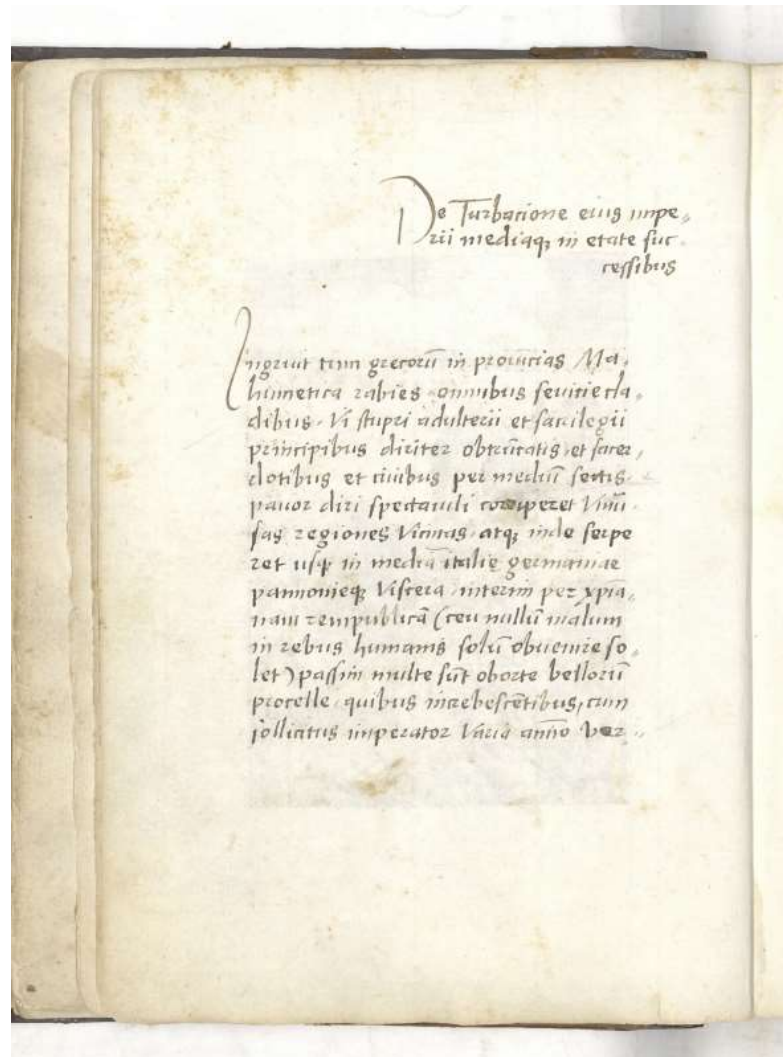 De Turbacione eius impe„
rii mediaqꝫ in etate suc„
cessibus
Ingruit tum grecorū in prouīcias Ma„
humetica rabies omnibus seuitie cla„
dibus. Vi stupri adulterii et sacrilegii
principibus diriter obtrūcatis et sacer„
dotibus et ciuibus per mediū sectis.
pauor diri spectaculi corriperet
sas regiones vicinas. atqꝫ inde serpe
ret usqꝫ in mediā italie germaniae
pannonieqꝫ viscera. interim per xp̄ia„
nam rempublicā (ceu nullū malum
in rebus humanis solū obuenire so„
let) passim multe sūt oborte bellorū
procelle. quibus increbescētibus, cum
sollicitus imperator vario animo ver„